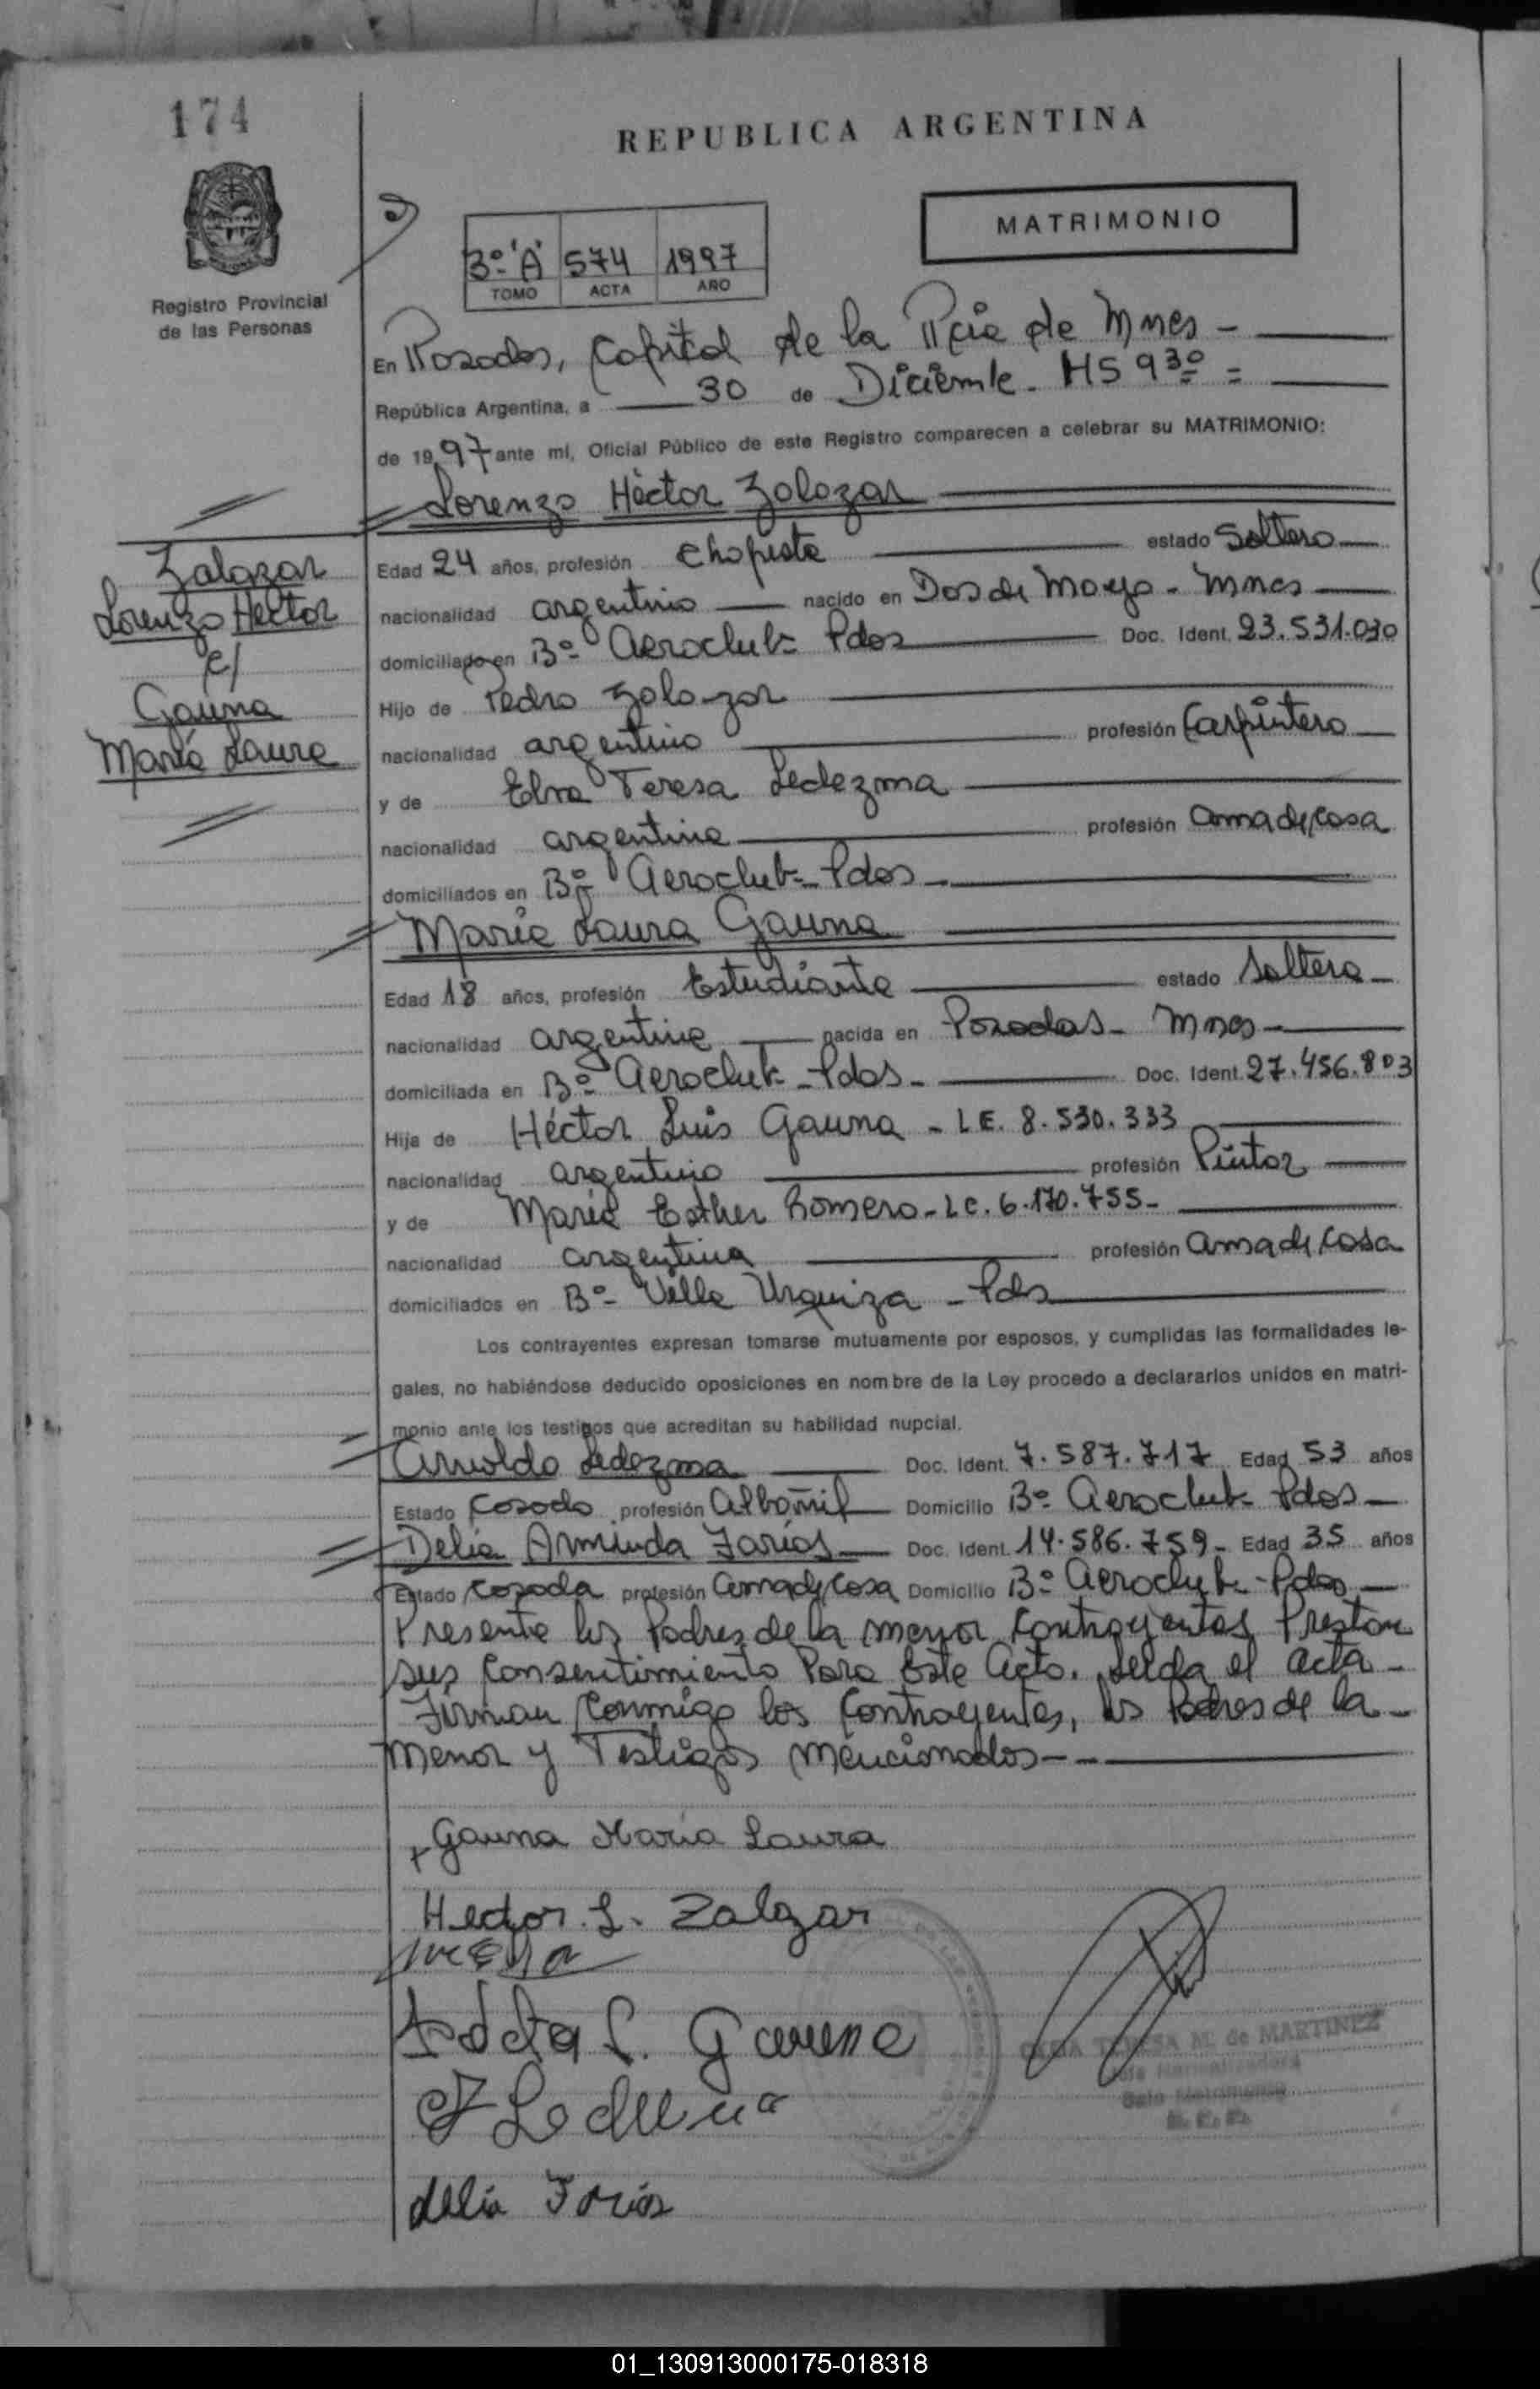 174
REPUBLICA ARGENTINA
MATRIMONIO
3º "A" 574 1997
TOMO ACTA AÑO
Registro Provincial
de las Personas
En Posadas, Capital de la Pcia de Mnes -
República Argentina, a 30 de Diciembre - HS 9 30 =
de 1997 ante mí, Oficial Público de este Registro comparecen a celebrar su MATRIMONIO:
Lorenzo Héctor Zalazar
Zalazar
Lorenzo Hector
c/
Gauna
María Laura
Edad 24 años, profesión Chapista estado Soltero
nacionalidad argentino nacido en Dos de Mayo - Mnes
domiciliado en Bº Aeroclub - Pdas Doc. Ident. 23.531.030
Hijo de Pedro Zalazar
nacionalidad argentino profesión Carpintero
y de Elva Teresa Ledezma
nacionalidad argentina profesión ama de casa
domiciliados en Bº Aeroclub - Pdas -
María Laura Gauna
Edad 18 años, profesión Estudiante estado Soltera -
nacionalidad argentina nacida en Posadas - Mnes -
domiciliada en Bº Aeroclub - Pdas - Doc. Ident. 27.456.803
Hija de Héctor Luis Gauna - L.E. 8.530.333
nacionalidad argentino profesión Pintor
y de María Esther Romero - L.C. 6.170.755 -
nacionalidad argentina profesión ama de casa
domiciliados en Bº Villa Urquiza - Pds
Los contrayentes expresan tomarse mutuamente por esposos, y cumplidas las formalidades le-
gales, no habiéndose deducido oposiciones en nombre de la Ley procedo a declararlos unidos en matri-
monio ante los testigos que acreditan su habilidad nupcial.
Arnoldo Ledezma Doc. Ident. 7.587.717 Edad 53 años
Estado Casado profesión Albañil Domicilio Bº Aeroclub - Pdas -
Delia Arminda Farías Doc. Ident. 14.586.759 - Edad 35 años
Estado Casada profesión ama de casa Domicilio Bº Aeroclub - Pdas -
Presente los Padres de la menor contrayentes Prestan
sus consentimiento Para este Acto. Leída el acta -
Firman conmigo los contrayentes, los Padres de la -
menor y Testigos mencionados - -
+ Gauna María Laura
Hector. L. Zalazar
L. Gauna
Delia Farias
TERESA M. de MARTINEZ
01_130913000175-018318